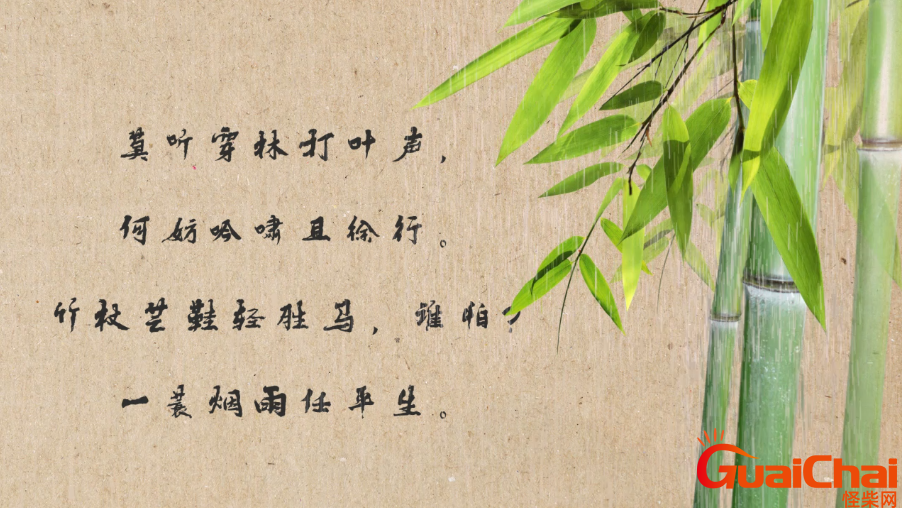 莫听穿林打叶声，
何妨吟啸且徐行。
竹杖芒鞋轻胜马，谁怕？
一蓑烟雨任平生。
GuaiChai
怪柴网